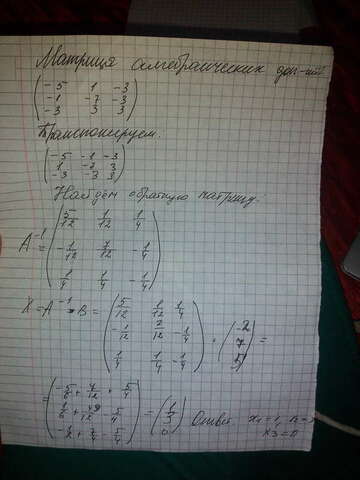 Матрица алгебраических доп-ний
-5 1 -3
-1 -7 -3
-3 3 3
Транспонируем.
-5 -1 -3
1 -7 3
-3 -3 3
Найдём обратную матрицу:
A⁻¹ = 5/12 1/12 1/4
-1/12 7/12 -1/4
1/4 1/4 -1/4
X = A⁻¹ * B = 5/12 1/12 1/4
-1/12 7/12 -1/4
1/4 1/4 -1/4
· -2
7
5
=
= -5/6 + 7/12 + 5/4
1/6 + 49/12 - 5/4
-1/2 + 7/4 - 5/4
= 1
3
0
Ответ x₁=1,
x₃=0